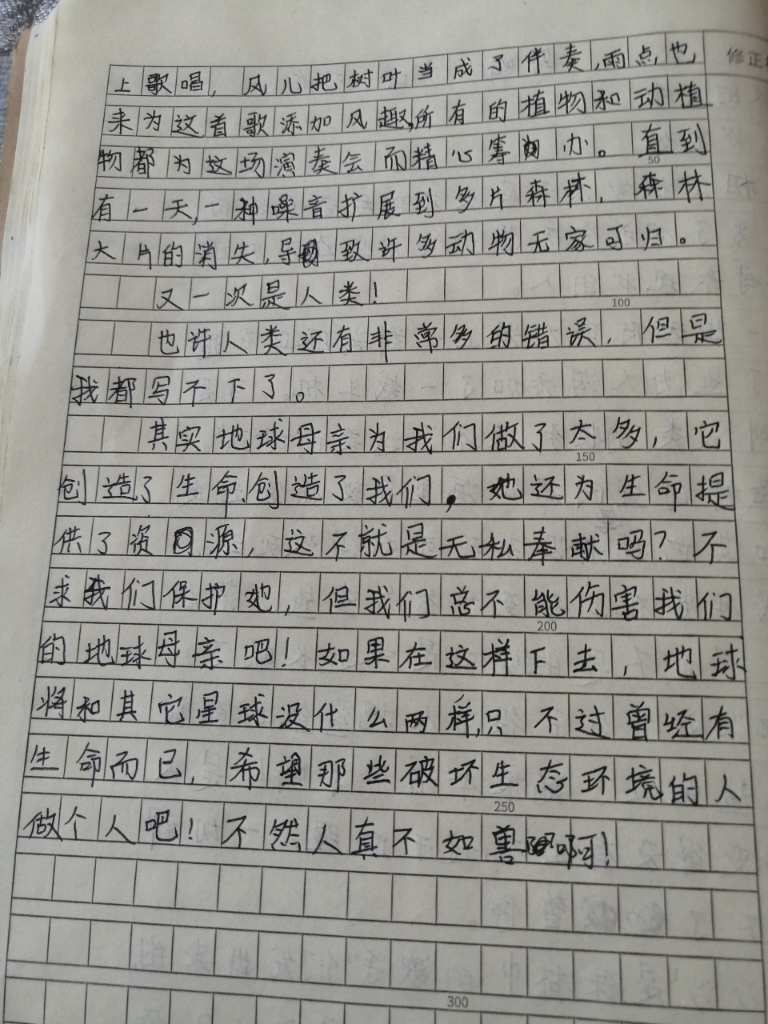 修正
上歌唱，风儿把树叶当成了伴奏，雨点也
来为这首歌添加风趣，所有的植物和动植
物都为这场演奏会而精心筹办。直到
50
有一天，一种噪音扩展到多片森林，森林
大片的消失，导致许多动物无家可归。
又一次是人类！
100
也许人类还有非常多的错误，但是
我都写不下了。
其实地球母亲为我们做了太多，它
150
创造了生命，创造了我们，她还为生命提
供了资源，这不就是无私奉献吗？不
求我们保护她，但我们总不能伤害我们
200
的地球母亲吧！如果在这样下去，地球
将和其它星球没什么两样，只不过曾经有
生命而已，希望那些破坏生态环境的人
250
做个人吧！不然人真不如兽啊！
300